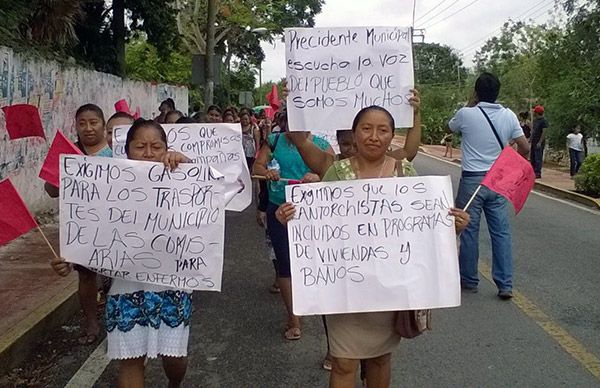 Precidente Municipal
escucha la voz
DEl PUEBLO QUE
SOMOS MUCHOS
EXIGIMOS GASOLINA
PARA LOS TRASPOR-
TES DEL MUNICIPIO
DE LAS COMIS-
ARIAS PARA
ENFERMOS
Exigimos Que los
ANTORCHISTAS SEAN
iNCluidos EN PROGRAMAS
DE ViViENDAS Y
BAÑOS
CUMPLA
COMPROMISOS